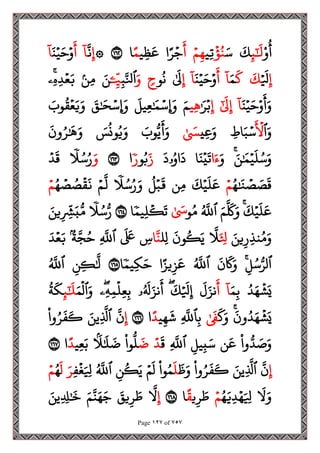 أُو۟لَـٰٓئِكَ سَنُؤْتِيهِمْ أَجْرًا عَظِيمًا ١٦٢ ۞ إِنَّآ أَوْحَيْنَآ
إِلَيْكَ كَمَآ أَوْحَيْنَآ إِلَىٰ نُوحٍ وَٱلنَّبِيِّـۧنَ مِنۢ بَعْدِهِۦ ۚ
وَأَوْحَيْنَآ إِلَىٰٓ إِبْرَٰهِيمَ وَإِسْمَـٰعِيلَ وَإِسْحَـٰقَ وَيَعْقُوبَ
وَٱلْأَسْبَاطِ وَعِيسَىٰ وَأَيُّوبَ وَيُونُسَ وَهَـٰرُونَ
وَسُلَيْمَـٰنَ ۚ وَءَاتَيْنَا دَاوُۥدَ زَبُورًا ١٦٣ وَرُسُلًا قَدْ
قَصَصْنَـٰهُمْ عَلَيْكَ مِن قَبْلُ وَرُسُلًا لَّمْ نَقْصُصْهُمْ
عَلَيْكَ ۚ وَكَلَّمَ ٱللَّهُ مُوسَىٰ تَكْلِيمًا ١٦٤ رُّسُلًا مُّبَشِّرِينَ
وَمُنذِرِينَ لِئَلَّا يَكُونَ لِلنَّاسِ عَلَى ٱللَّهِ حُجَّةٌۢ بَعْدَ
ٱلرُّسُلِ ۚ وَكَانَ ٱللَّهُ عَزِيزًا حَكِيمًا ١٦٥ لَّـٰكِنِ ٱللَّهُ
يَشْهَدُ بِمَآ أَنزَلَ إِلَيْكَ ۖ أَنزَلَهُۥ بِعِلْمِهِۦ ۖ وَٱلْمَلَـٰٓئِكَةُ
يَشْهَدُونَ ۚ وَكَفَىٰ بِٱللَّهِ شَهِيدًا ١٦٦ إِنَّ ٱلَّذِينَ كَفَرُوا۟
وَصَدُّوا۟ عَن سَبِيلِ ٱللَّهِ قَدْ ضَلُّوا۟ ضَلَـٰلًۢا بَعِيدًا ١٦٧
إِنَّ ٱلَّذِينَ كَفَرُوا۟ وَظَلَمُوا۟ لَمْ يَكُنِ ٱللَّهُ لِيَغْفِرَ لَهُمْ
وَلَا لِيَهْدِيَهُمْ طَرِيقًا ١٦٨ إِلَّا طَرِيقَ جَهَنَّمَ خَـٰلِدِينَ
Page ١٢٧ of ٧٥٧